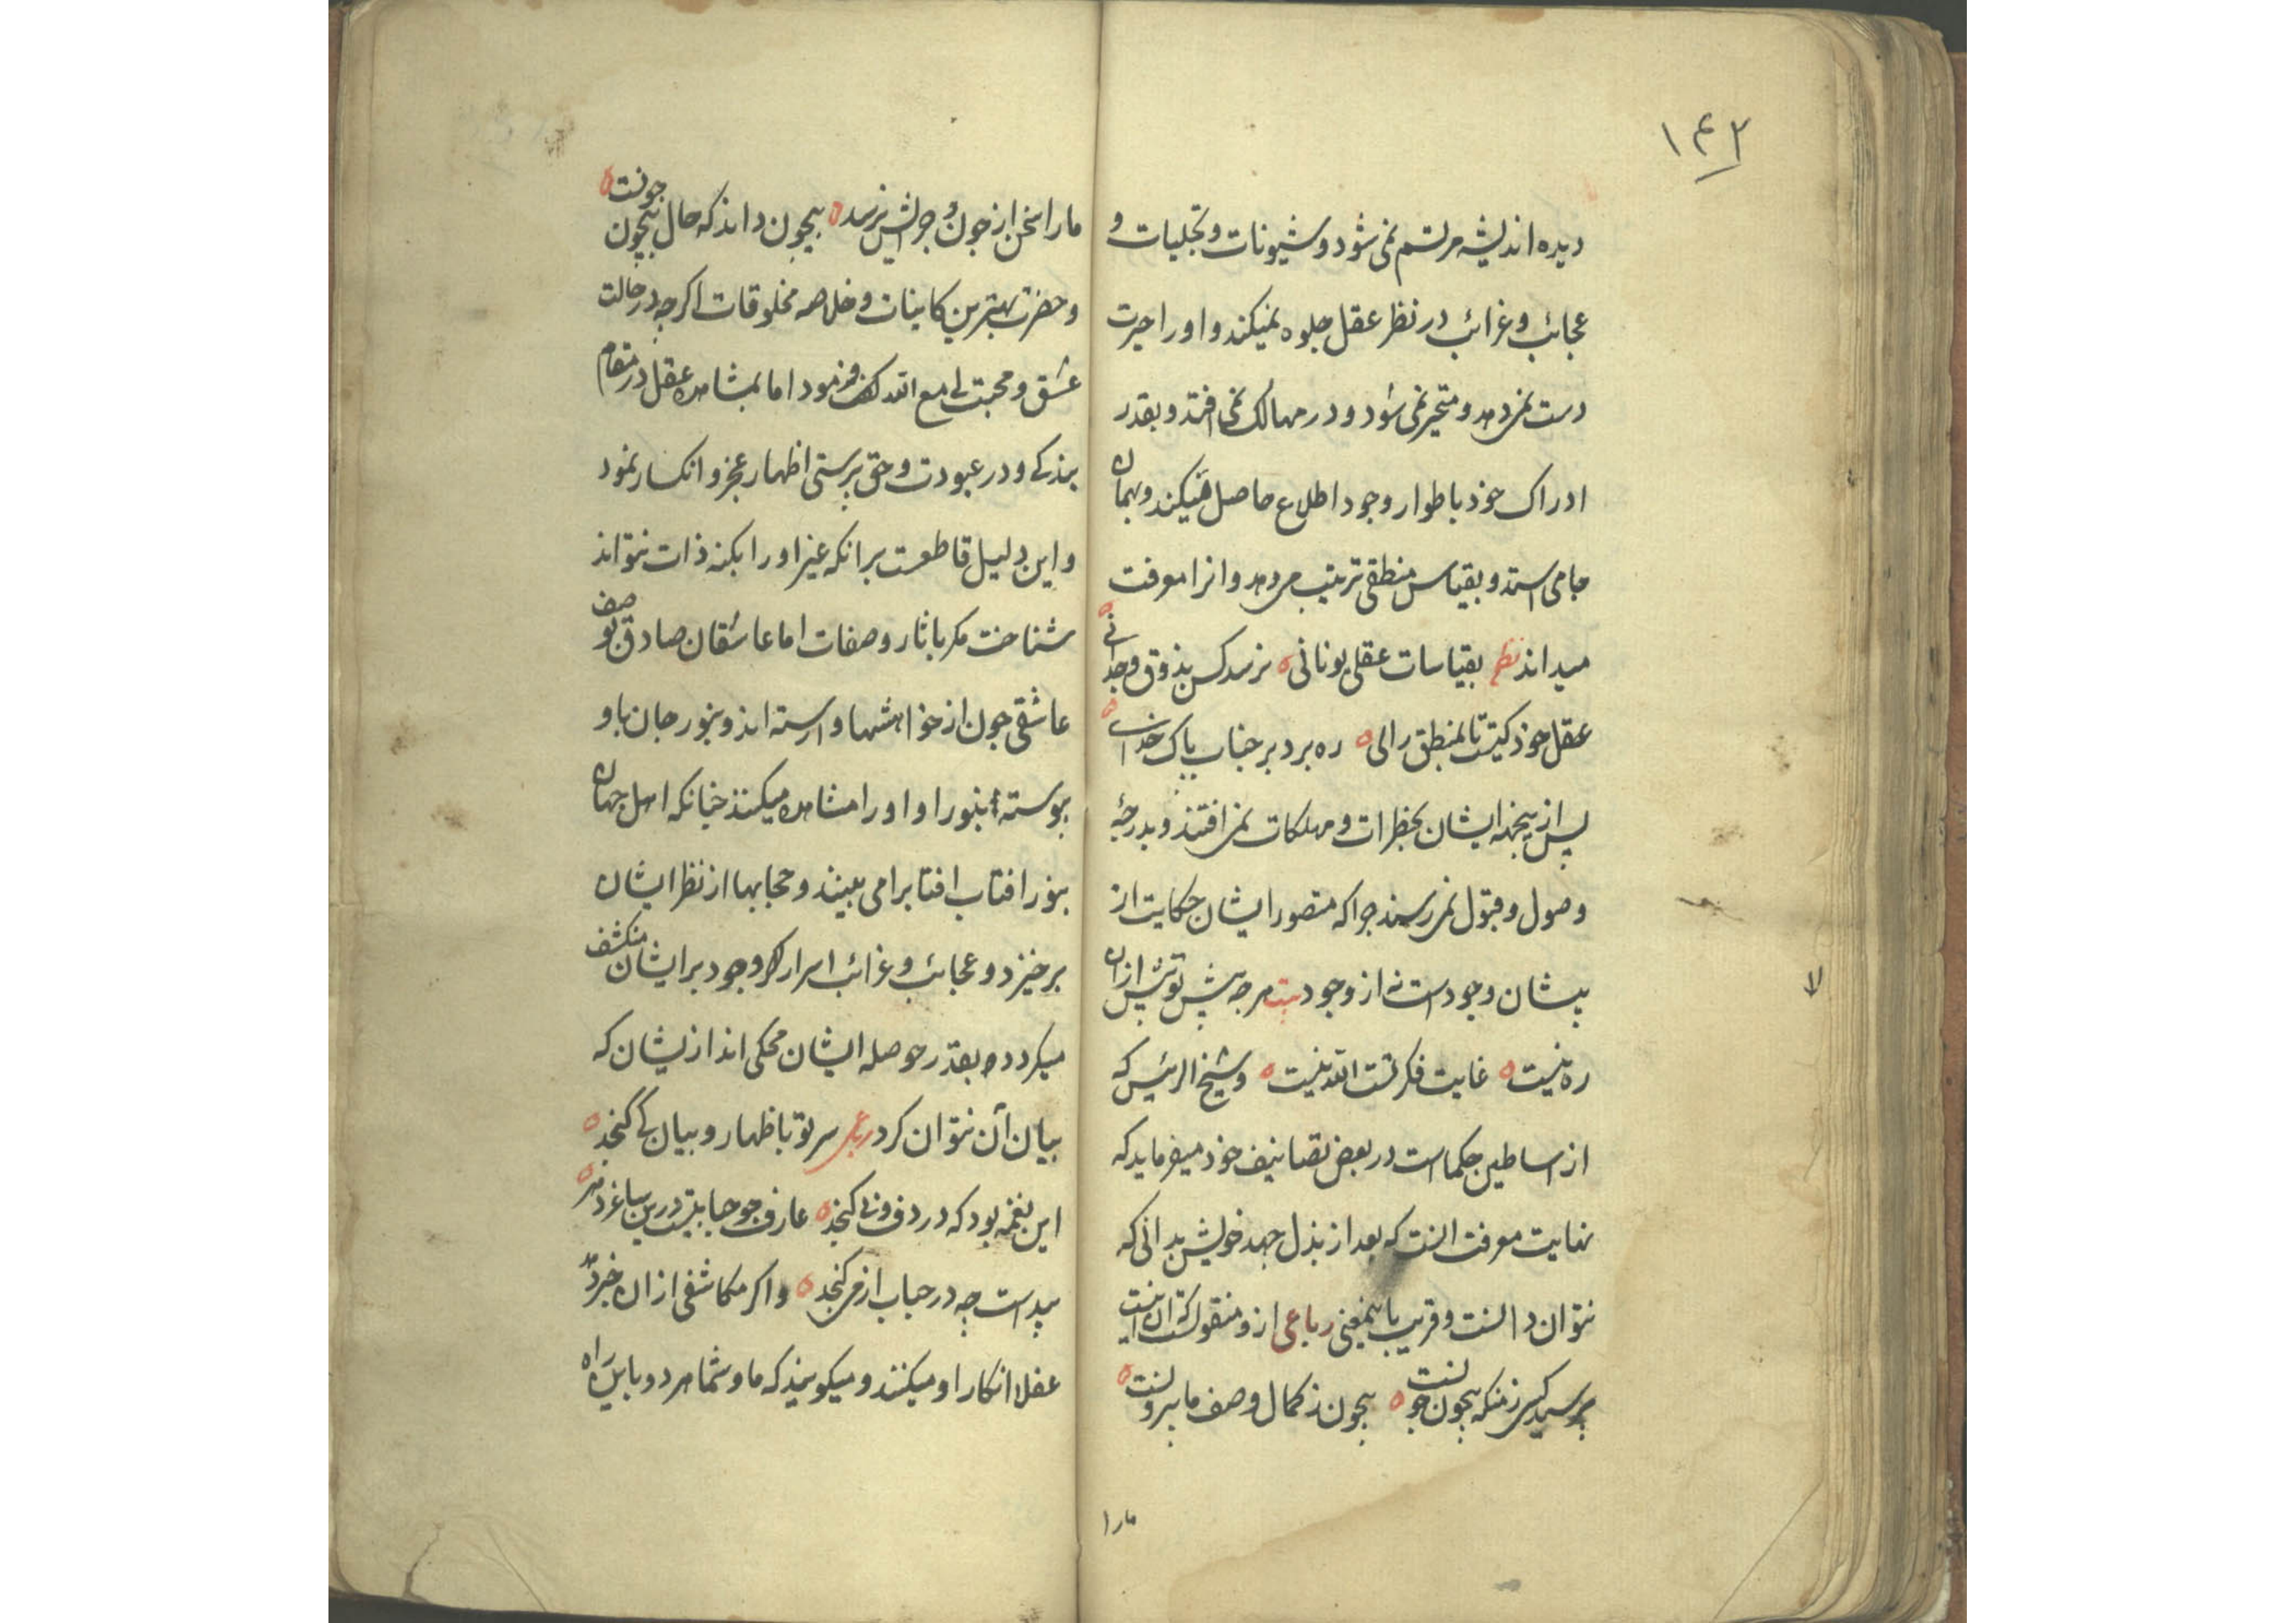 ۱۴۲
دیده اندیشه مرتسم نمی شود و شیونات و تجلیات و
عجائب و غرائب در نظر عقل جلوه نمیکند و او را حیرت
دست نمی دهد و متحیر نمی شود و در مهالک نمی افتد و بقدر
ادراک خود باطوار وجود اطلاع حاصل میکند و بهمان
جا می استد و بقیاس منطقی ترتیب می دهد و انرا معرفت
میداند نظم بقیاسات عقلی یونانی ه نرسد کس بذوق وجدانی ه
عقل خود کیست تا بمنطق و رای ه ره برد بر جناب پاک خدای ه
پس از ینجهه ایشان بخطرات و مهلکات نمی افتند و بدرجهٔ
وصول و قبول نمی رسند چرا که متصور ایشان حکایت از
پیشان وجود است نه از وجود بیت هرچه پیش تو بیش ازان
ره نیست ه غایت فکر تست الله نیست ه و شیخ الرئیس که
از اساطین حکماست در بعض تصانیف خود میفرماید که
نهایت معرفت انست که بعد از بذل جهد خویش بدانی که
نتوان دانست و قریب باینمعنی رباعی ازو منقولست و آن اینست
پرسید کسی ز من که بیچون چونست ه بیچون ز کمال وصف ما بیرونست ه
مارا
ما را سخن از چون و چرایش نرسد ه بیچون داند که حال بیچون چونست ه
و حضرت بهترین کاینات و خلاصه مخلوقات اگرچه در حالت
عشق و محبت لی مع الله گفت و فرمود اما بمشاهده عقل در مقام
بندگی و در عبودت و حق پرستی اظهار عجز و انکسار نمود
و این دلیل قاطعست بر انکه غیر او را بکنه ذات نتواند
شناخت مگر باثار و صفات اما عاشقان صادق بوصف
عاشقی چون از خواهشها وارسته اند و بنور جان باو
پیوسته بنور او او را مشاهده میکنند چنانکه اهل جهان
بنور افتاب افتاب را می بینند و حجابها از نظر ایشان
برخیزد و عجائب و غرائب اسرار وجود بر ایشان منکشف
میگردد و بقدر حوصله ایشان محکی اند از یشان که
بیان آن نتوان کرد رباعی سر تو باظهار و بیان کی گنجد ه
این نغمه بود که در دف و نی گنجد ه عارف چو حبابیست درین ساغر دهر ه
پیداست چه در حباب از می گنجد ه و اگر مکاشفی از ان خبر دهد
عقلا انکار او میکنند و میگویند که ما و شما هر دو باین راه